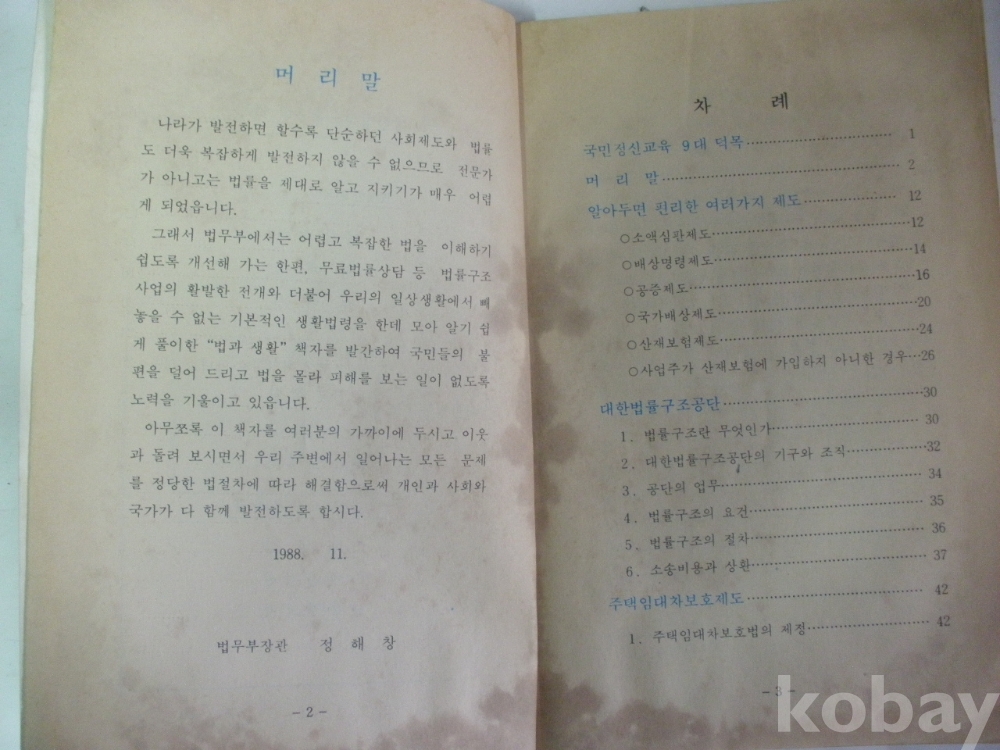 머 리 말
나라가 발전하면 할수록 단순하던 사회제도와 법률
도 더욱 복잡하게 발전하지 않을 수 없으므로 전문가
가 아니고는 법률을 제대로 알고 지키기가 매우 어렵
게 되었읍니다.
그래서 법무부에서는 어렵고 복잡한 법을 이해하기
쉽도록 개선해 가는 한편, 무료법률상담 등 법률구조
사업의 활발한 전개와 더불어 우리의 일상생활에서 빼
놓을 수 없는 기본적인 생활법령을 한데 모아 알기 쉽
게 풀이한 “법과 생활” 책자를 발간하여 국민들의 불
편을 덜어 드리고 법을 몰라 피해를 보는 일이 없도록
노력을 기울이고 있읍니다.
아무쪼록 이 책자를 여러분의 가까이에 두시고 이웃
과 돌려 보시면서 우리 주변에서 일어나는 모든 문제
를 정당한 법절차에 따라 해결함으로써 개인과 사회와
국가가 다 함께 발전하도록 합시다.
1988. 11.
법무부장관 정 해 창
－2－
차 례
국민정신교육 9대 덕목 ········ 1
머 리 말 ········ 2
알아두면 편리한 여러가지 제도 ········ 12
○소액심판제도 ········ 12
○배상명령제도 ········ 14
○공증제도 ········ 16
○국가배상제도 ········ 20
○산재보험제도 ········ 24
○사업주가 산재보험에 가입하지 아니한 경우 ··· 26
대한법률구조공단 ········ 30
1. 법률구조란 무엇인가 ········ 30
2. 대한법률구조공단의 기구와 조직 ········ 32
3. 공단의 업무 ········ 34
4. 법률구조의 요건 ········ 35
5. 법률구조의 절차 ········ 36
6. 소송비용과 상환 ········ 37
주택임대차보호제도 ········ 42
1. 주택임대차보호법의 제정 ········ 42
－3－
kobay